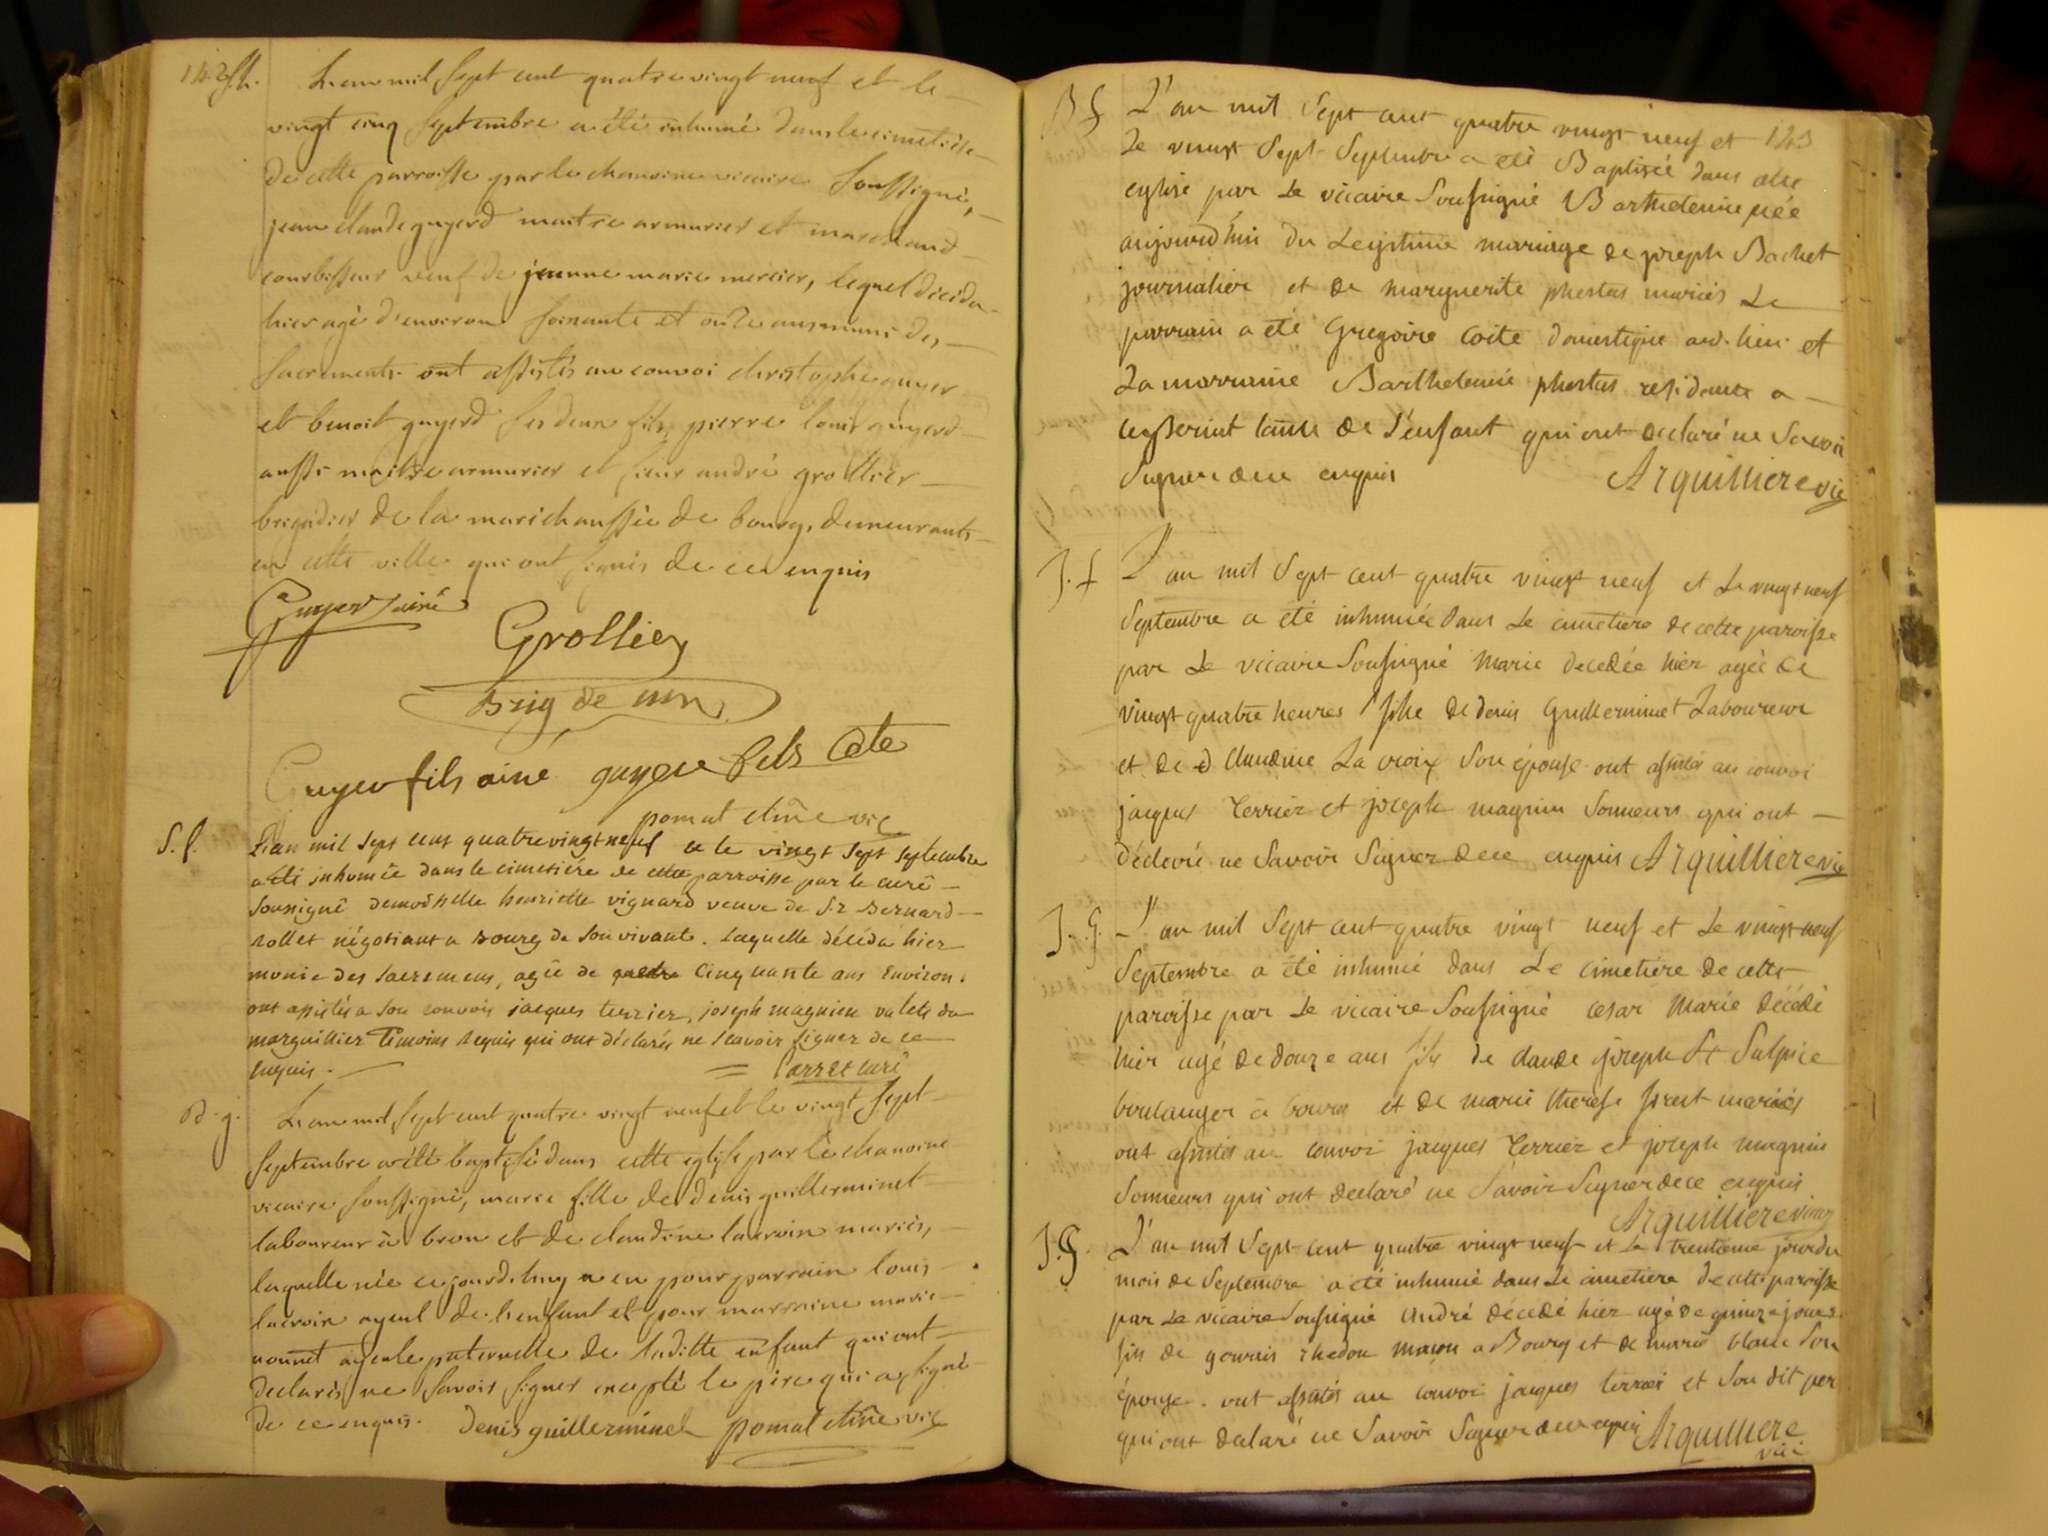 142 S.h.
L'an mil sept cent quatre vingt neuf et le
vingt cinq septembre a été inhumé dans le cimetière
de cette parroisse par le chanoine vicaire soussigné,
jean claude guyerd maitre armurier et marchand
fourbisseur veuf de jeanne marie mercier, lequel décéda
hier agé d'environ soixante et onze ans muni des
sacrements ont assistés au convoi christophe guyer
et benoit guyerd ses deux fils, pierre louis guyerd
aussi maitre armurier et sieur andré grollier
brigadier de la marichaussée de bourg, demeurants
en cette ville qui ont signés de ce enquis
Guyer ainé
Grollier
Brig de
Guyer fils ainé guyer fils
pomat chne vic
S. f.
L'an mil sept cens quatre vingt neuf et le vingt sept septembre
a été inhumée dans le cimetière de cette parroisse par le curé
soussigné demoiselle henriette vignard veuve de Sr Bernard
rollet négotiant a Bourg de son vivant. laquelle décéda hier
munie des sacremens, agée de cinquante ans environ.
ont assistés a son convois jacques terrier, joseph magnien valets du
marguillier témoins requis qui ont déclarés ne scavoir signer de ce
enquis. = curé
B. g.
L'an mil sept cent quatre vingt neuf et le vingt sept
septembre a été baptisée dans cette eglise par le chanoine
vicaire soussigné, marie fille de denis guillerminet
laboureur à brou et de claudine lacroix mariés,
laquelle née ce jourd.huy a eu pour parrain louis
lacroix ayeul de l'enfant et pour marraine marie
nonnet ayeule paternelle de laditte enfant qui ont
declarés ne savoir signer excepté le père qui a signé
de ce enquis. denis guillerminet pomat chne vic
B f
L'an mil sept cent quatre vingt neuf et 143
Le vingt sept septembre a été Baptisée dans cette
eglise par Le vicaire soussigné Barthelemie née
aujourd'hui du Legitime mariage de joseph Bachet
journalier et de marguerite phostas mariés Le
parrain a été Gregoire coite domestique aud. lieu et
La marraine Barthelemie phostas residente a
ceysseriat tante de L'enfant qui ont declaré ne Savoir
Signer de ce enquis Arquilliere vic
J. f
L'an mil Sept cent quatre vingt neuf et Le vingt neuf
Septembre a été inhumée dans Le cimetiere de cette paroisse
par Le vicaire Soussigné Marie decedée hier agée de
vingt quatre heures fille de denis Guillerminet Laboureur
et de Claudine La croix Son épouse ont assistés au convoi
jacques Terrier et joseph magnin Sonneurs qui ont
déclaré ne Savoir Signer de ce enquis Arquilliere vic
J. G.
L'an mil Sept cent quatre vingt neuf et Le vingt neuf
Septembre a été inhumé dans Le cimetiere de cette
paroisse par Le vicaire Soussigné cesar Marie décédé
hier agé de douze ans fils de claude joseph St Sulpice
boulanger à bourg et de marie therese mariés
ont assistés au convoi jacques Terrier et joseph magnin
Sonneurs qui ont declaré ne Savoir Signer de ce enquis
Arquilliere vicaire
J. G.
L'an mil Sept cent quatre vingt neuf et Le trentieme jour du
mois de Septembre a été inhumé dans Le cimetiere de cette paroisse
par Le vicaire Soussigné André décédé hier agé de quinze jours
fils de gervais rhedon maçon a Bourg et de marie blanc Son
épouse. ont assistés au convoi jacques terrier et Son dit per
qui ont declaré ne Savoir Signer de ce enquis Arquilliere
vic